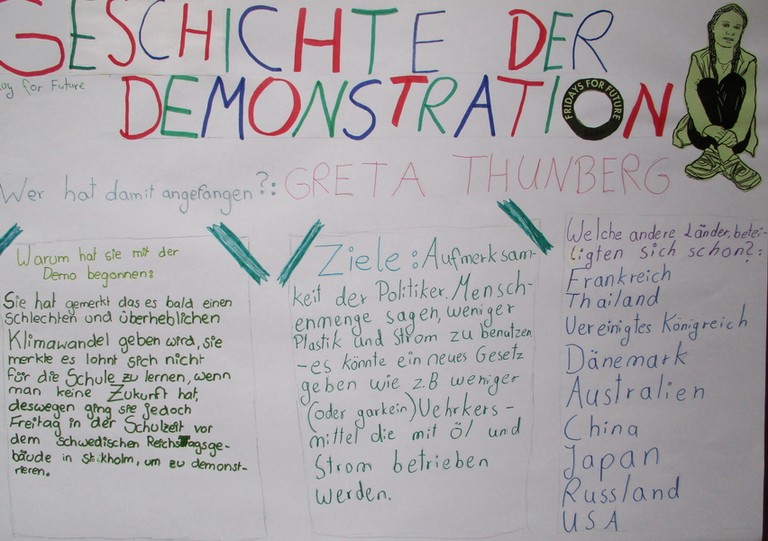 GESCHICHTE DER
ay for Future
DEMONSTRATION
FRIDAYS FOR FUTURE
Wer hat damit angefangen?: GRETA THUNBERG
Warum hat sie mit der
Demo begonnen:
Sie hat gemerkt das es bald einen
Schlechten und überheblichen
Klimawandel geben wird, sie
merkte es lohnt sich nicht
für die Schule zu lernen, wenn
man keine Zukunft hat,
deswegen ging sie jedoch
Freitag in der Schulzeit vor
dem schwedischen Reichstagsge-
bäude in Stokholm, um zu demonst-
rieren.
Ziele: Aufmerksam-
keit der Politiker. Mensch-
enmenge sagen, weniger
Plastik und Strom zu benutzen
-es könnte ein neues Gesetz
geben wie z.B weniger
(oder garkein) Vehrkers-
mittel die mit Öl und
Strom betrieben
werden.
Welche andere Länder betei-
ligten sich schon?:
Frankreich
Thailand
Vereinigtes Königreich
Dänemark
Australien
China
Japan
Russland
USA